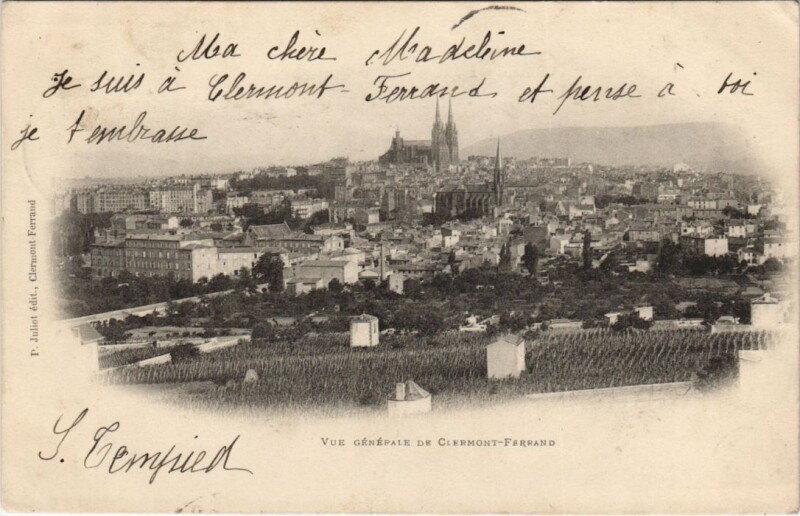 Ma chère Madeleine
Je suis à Clermont-Ferrand et pense à toi
je t'embrasse
P. Juliot édit., Clermont-Ferrand
S. Tempied
VUE GÉNÉRALE DE CLERMONT-FERRAND